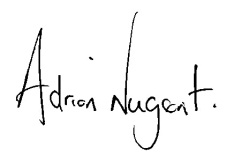 Adrian Nugent.